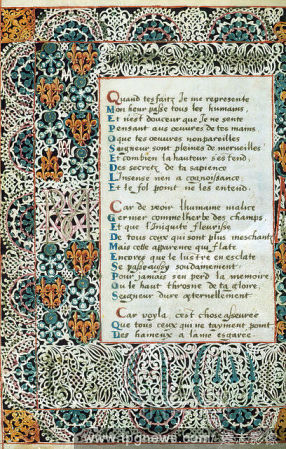 Quand tes faitz Je me represente
Mon heur passe tous les humains,
Et n'est douceur que Je ne sente
Pensant aux œuvres de tes mains
O que tes œuvres nonpareilles
Seigneur sont pleines de merveilles
Et combien la hauteur s'estend,
Des secretz de ta sapience
L'insensé n'en a connoissance
Et le fol point ne les entend.
Car de veoir l'humaine malice
Germer comme l'herbe des champs,
Et que l'iniquite fleurisse
De tous ceux qui sont plus meschants
Mais ceste apparence qui flate
Encores que le lustre en esclate
Se passe aussy soudainement
Pour jamais s'en perd la memoire
Ou le haut throsne de ta gloire,
Seigneur dure eternellement.
Car voyla c'est chose asseurée
Que tous ceux qui ne t'ayment point
Des haineux a l'ame esgarée
www.tpgnews.com